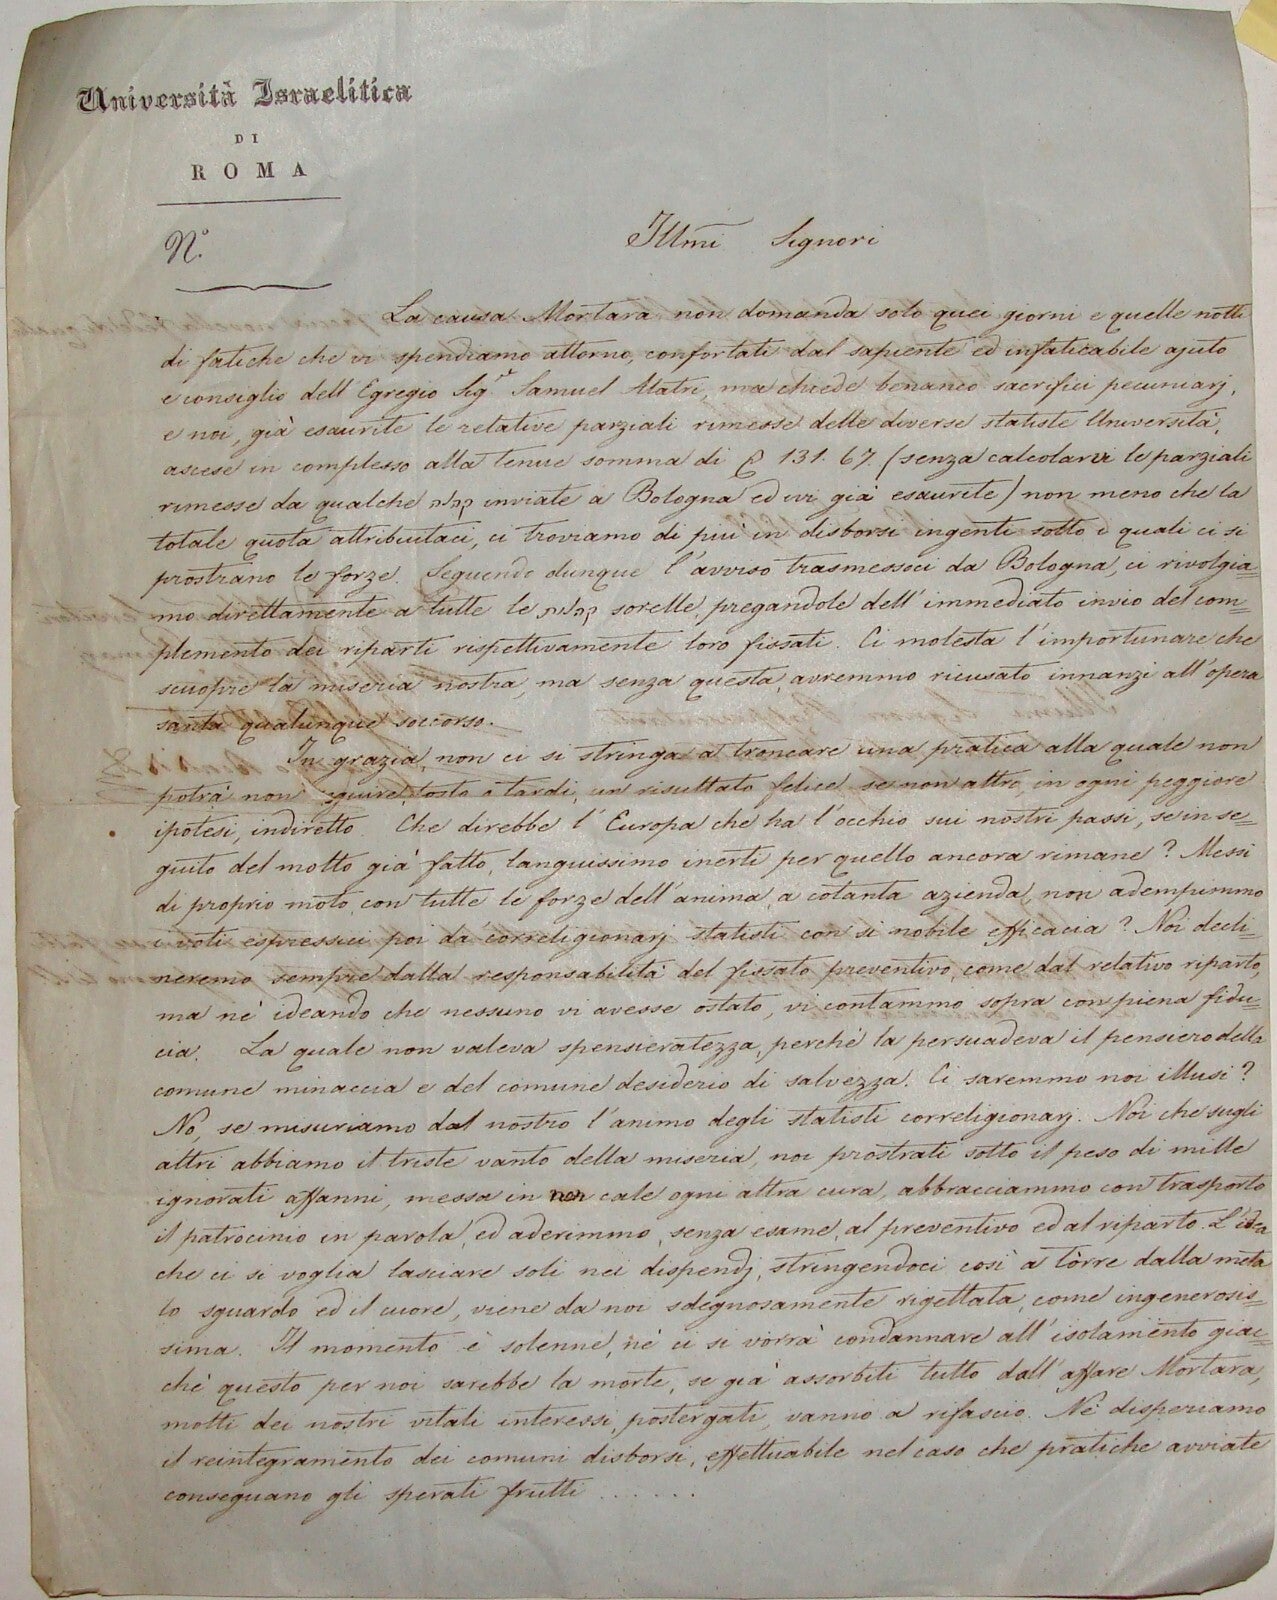 Università Israelitica
DI
ROMA
N.°
Illmi Signori
La causa Mortara non domanda solo quei giorni e quelle notti
di fatiche che vi spendiamo attorno, confortati dal sapiente ed infaticabile ajuto
e consiglio dell' Egregio Sig.r Samuel Alatri, ma chiede benanco sacrifici pecuniarj,
e noi, già esaurite le relative parziali rimesse delle diverse statiste Università,
ascese in complesso alla tenue somma di 131. 67. (senza calcolarvi le parziali
rimesse da qualche קהלות inviate a Bologna ed ivi già esaurite) non meno che la
totale quota attribuitaci, ci troviamo di più in disborsi ingenti sotto i quali ci si
prostrano le forze. Seguendo dunque l'avviso trasmessoci da Bologna, ci rivolgia=
mo direttamente a tutte le קהלות sorelle, pregandole dell' immediato invio del com=
plemento dei riparti rispettivamente loro fissati. Ci molesta l'importunare che
scuopre la miseria nostra, ma senza questa, avremmo ricusato innanzi all'opera
santa qualunque soccorso.
In grazia, non ci si stringa a troncare una pratica alla quale non
potrà non seguire, tosto o tardi, un risultato felice se non altro, in ogni peggiore
ipotesi, indiretto. Che direbbe l' Europa che ha l'occhio sui nostri passi, se in se=
guito del molto già fatto, languissimo inerti per quello ancora rimane? Messi
di proprio moto, con tutte le forze dell'anima, a cotanta azienda, non adempimmo
i voti espressici poi da correligionarj statisti con si nobile efficacia? Noi decli=
neremo sempre dalla responsabilità del fissato preventivo, come dal relativo riparto,
ma nè ideando che nessuno vi avesse ostato, vi contammo sopra con piena fidu=
cia. La quale non valeva spensieratezza, perchè la persuadeva il pensiero della
comune minaccia e del comune desiderio di salvezza. Ci saremmo noi illusi?
No, se misuriamo dal nostro l'animo degli statisti correligionarj. Noi che sugli
altri abbiamo il triste vanto della miseria, noi prostrati sotto il peso di mille
ignorati affanni, messa in non cale ogni altra cura, abbracciammo con trasporto
il patrocinio in parola, ed aderimmo, senza esame, al preventivo ed al riparto. L'idea
che ci si voglia lasciare soli nei dispendj, stringendoci così a tòrre dalla meta
lo sguardo ed il cuore, viene da noi sdegnosamente rigettata, come ingenerosis=
sima. Il momento è solenne, nè ci si vorrà condannare all' isolamento giac=
chè questo per noi sarebbe la morte, se già assorbiti tutto dall' affare Mortara,
molti dei nostri vitali interessi, postergati, vanno a rifascio. Nè disperiamo
il reintegramento dei comuni disborsi, effettuabile nel caso che pratiche avviate
conseguano gli sperati frutti . . . . . .